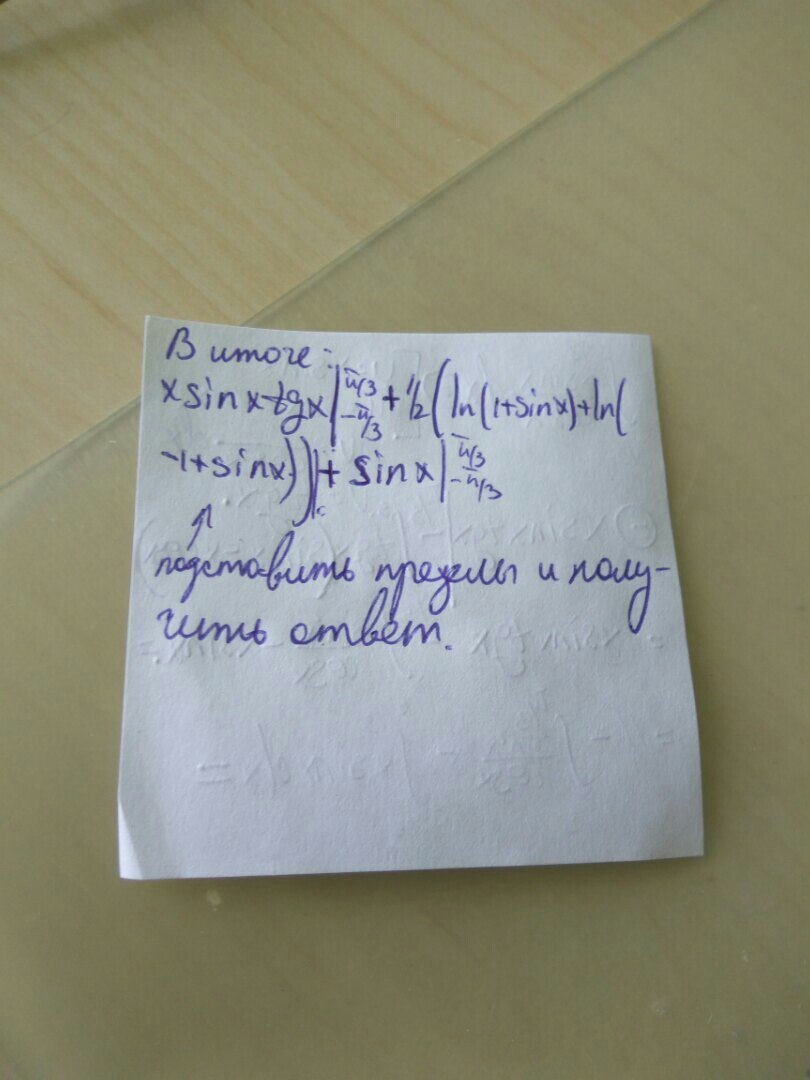 В итоге:
x sin x tg x |π/3 -π/3 + 1/2 (ln(1+sin x)+ln(
-1+sin x)) | + sin x |π/3 -π/3
↑
подставить пределы и полу-
чить ответ.